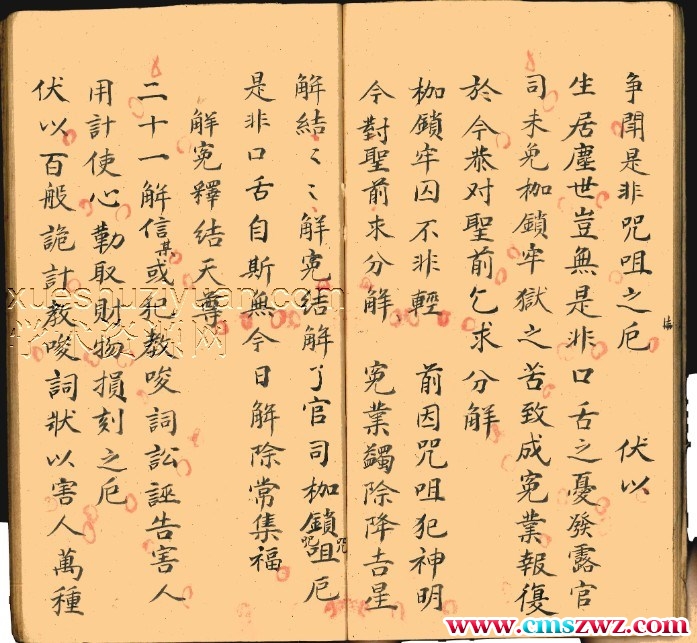 爭鬧是非咒咀之厄　伏以
生居塵世豈無是非口舌之憂發露官
司未免枷鎖牢獄之苦致成寃業報復
於今恭对聖前乞求分解
枷鎖牢囚不非輕　前因咒咀犯神明
今對聖前求分解　寃業蠲除降吉星
解結〻〻解寃結解了官司枷鎖咀厄
咒
呪
是非口舌自斯無今日解除常集福
解寃釋結天尊
二十一解信某或犯教唆詞訟誣告害人
用計使心勤取財物損刻之厄
伏以百般詭計教唆詞狀以害人萬種
xueshuziyuan.com
学术资源网
www.cmszwz.com